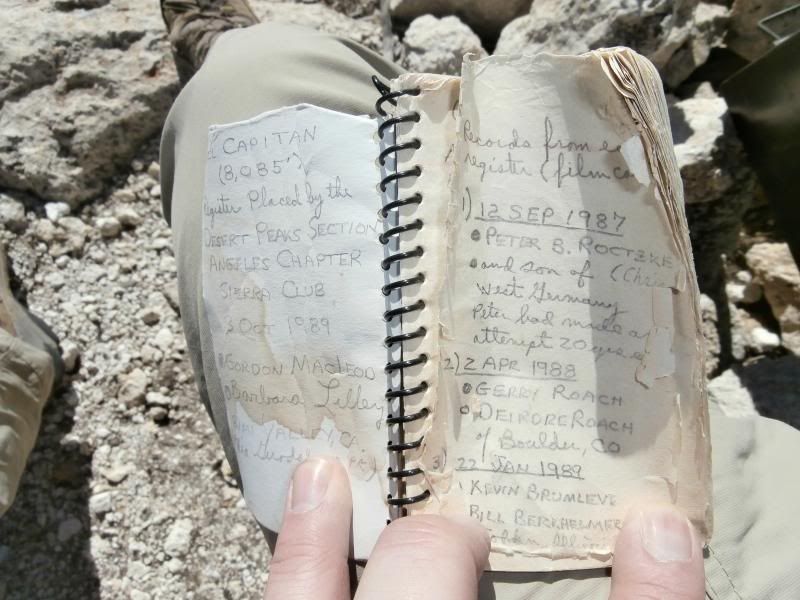 CAPITAN
(8,085')
Register Placed by the
DESERT PEAKS SECTION
ANGELES CHAPTER
SIERRA CLUB
3 OCT 1989
GORDON MACLEOD
Barbara Lilley
VALLEY, CA
Records from ea
register (film ca
1) 12 SEP 1987
PETER B. ROCTZKE
and son of (Chris
West Germany
Peter had made a
attempt 20 yrs.
2) 2 APR 1988
GERRY ROACH
DEIRDRE ROACH
% Boulder, CO
3) 22 JAN 1989
KEVIN BRUMLEVE
BILL BERKHEIMER